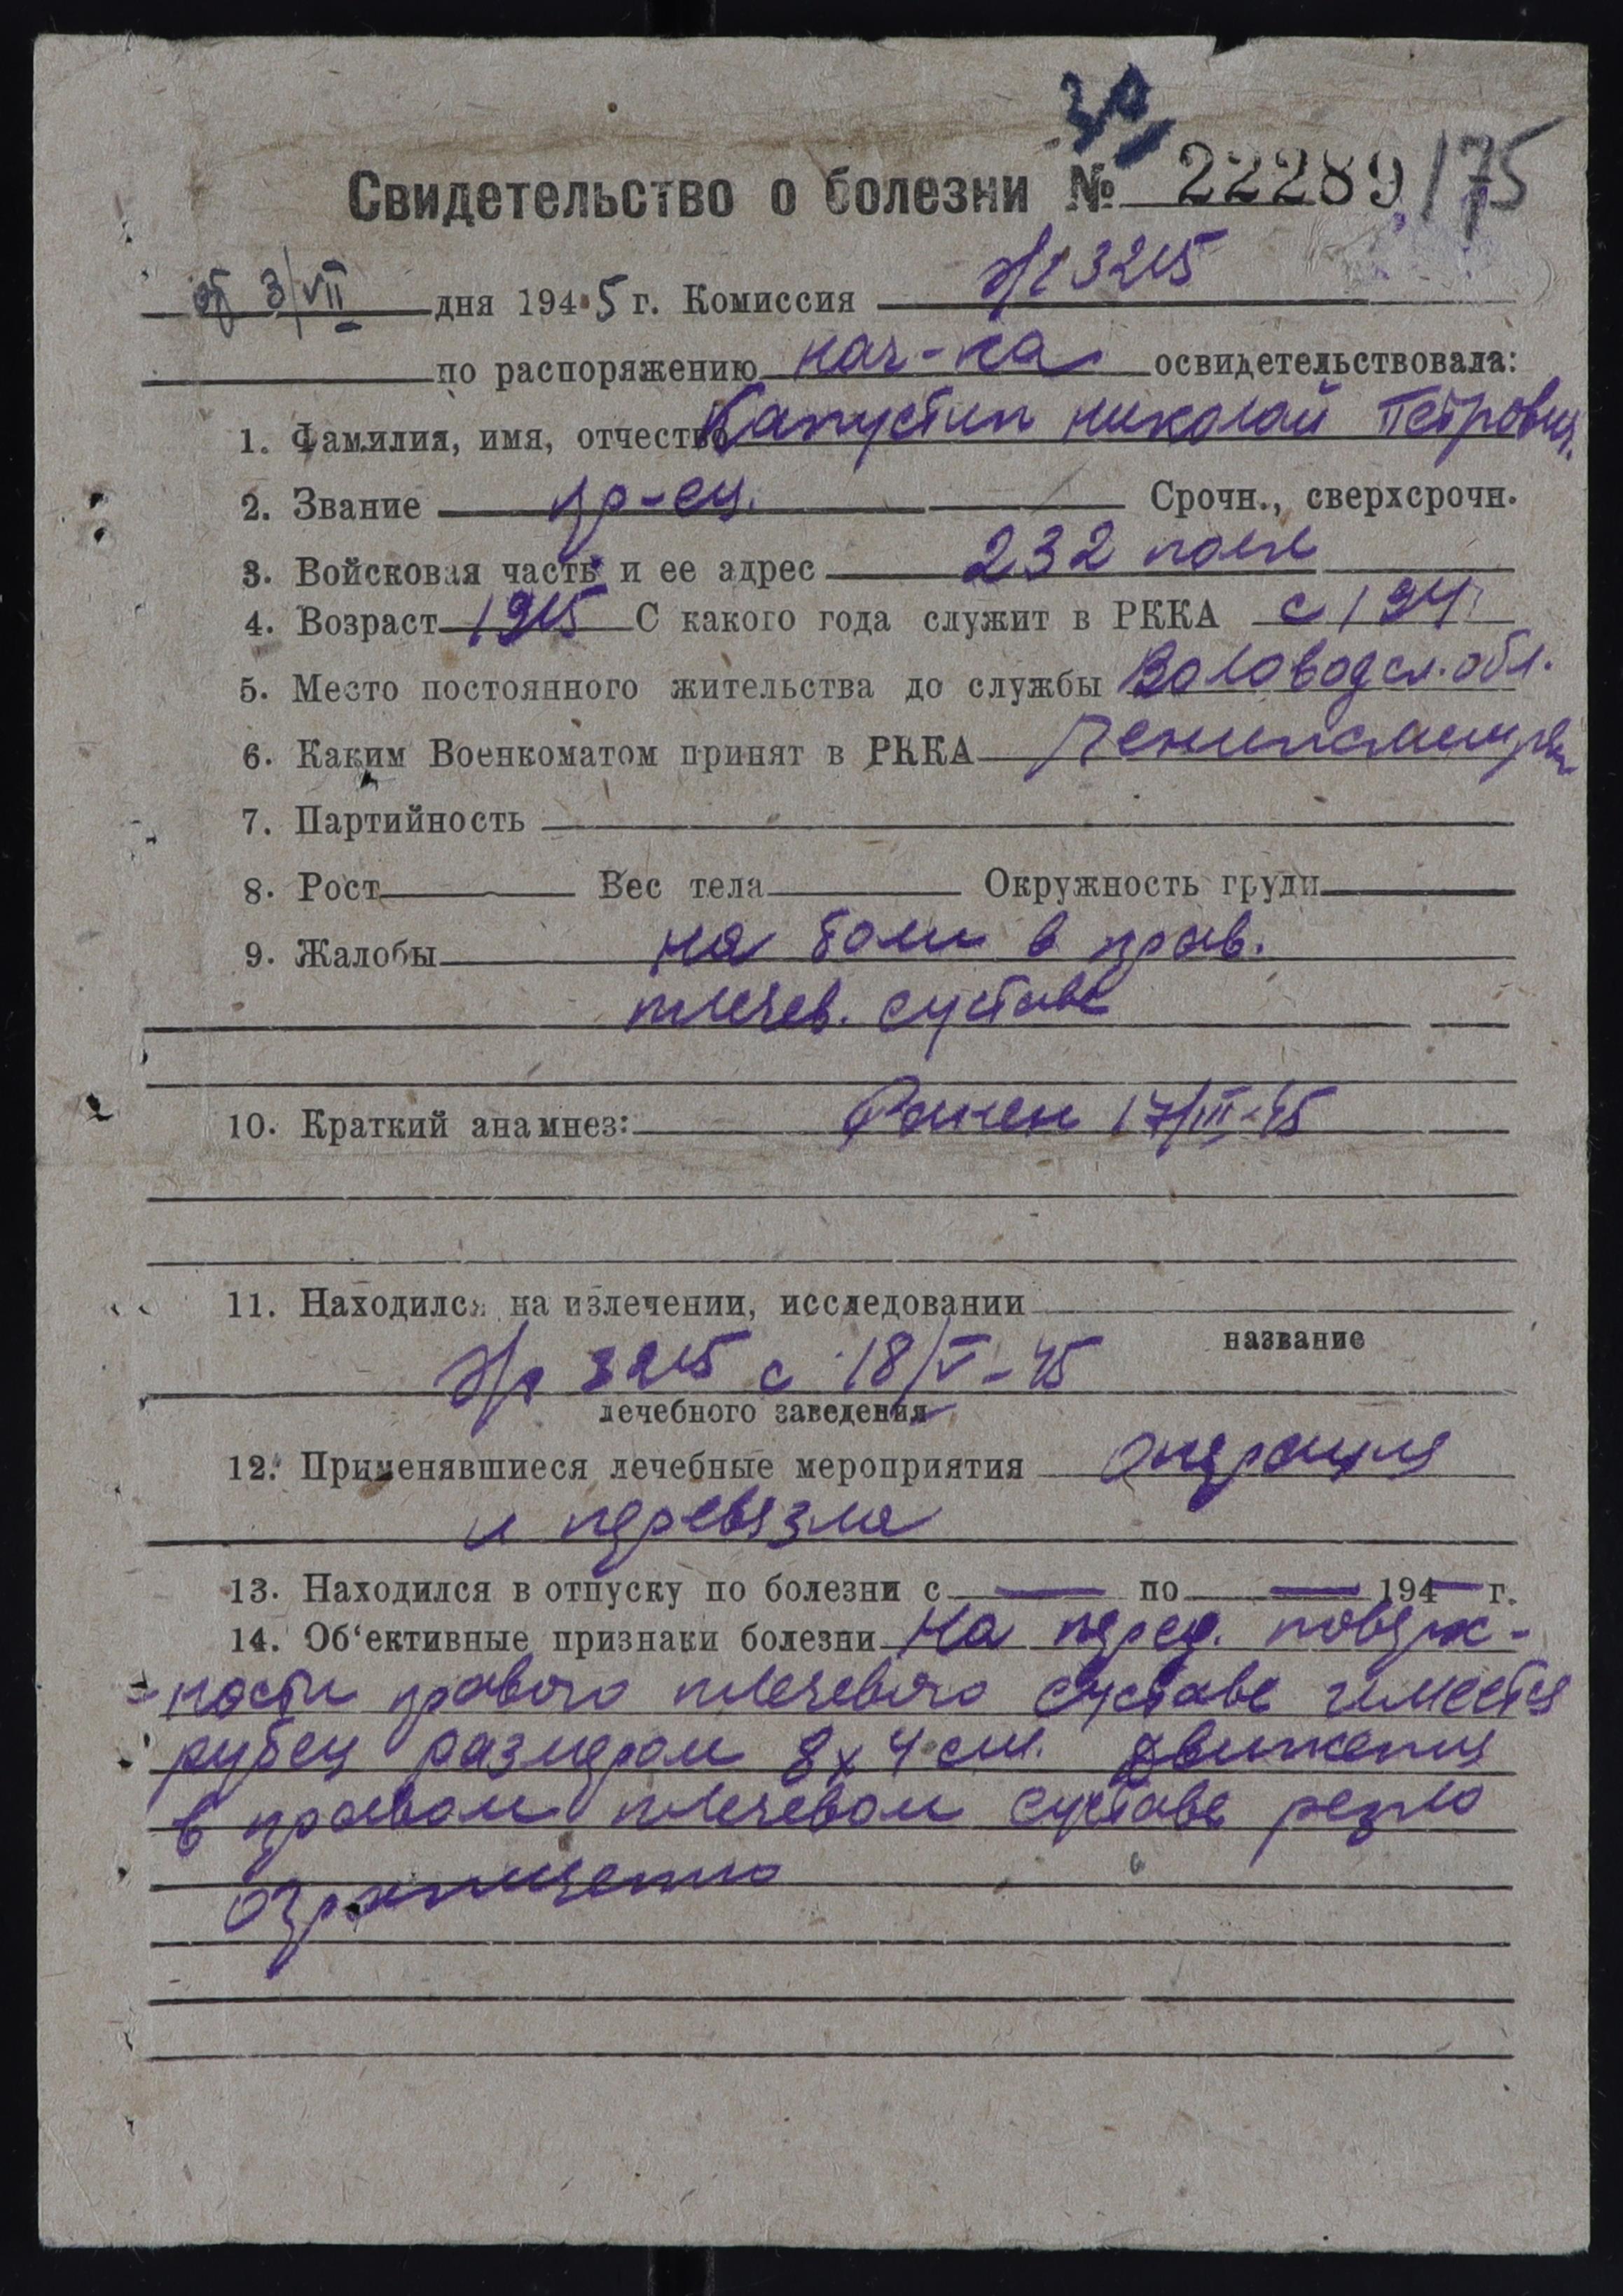 30
Свидетельство о болезни № 22289/75
об 3/VII дня 1945 г. Комиссия э/г 3215
по распоряжению нач-ка освидетельствовала:
1. Фамилия, имя, отчество Капустин Николай Петрович
2. Звание кр-ец. Срочн., сверхсрочн.
3. Войсковая часть и ее адрес 232 полк
4. Возраст 1915 С какого года служит в РККА с 1941
5. Место постоянного жительства до службы Вологодск. обл.
6. Каким Военкоматом принят в РККА
7. Партийность
8. Рост Вес тела Окружность груди
9. Жалобы на боли в прав.
плечев. суставе
10. Краткий анамнез: Ранен 17/III-45
11. Находился на излечении, исследовании
название
э/г 3215 с 18/V-45
лечебного заведения
12. Применявшиеся лечебные мероприятия операция
и перевязка
13. Находился в отпуску по болезни с — по — 194— г.
14. Об'ективные признаки болезни На перед. поверх-
ности правого плечевого сустава имеется
рубец размером 8х4 см. Движения
в правом плечевом суставе резко
ограничено